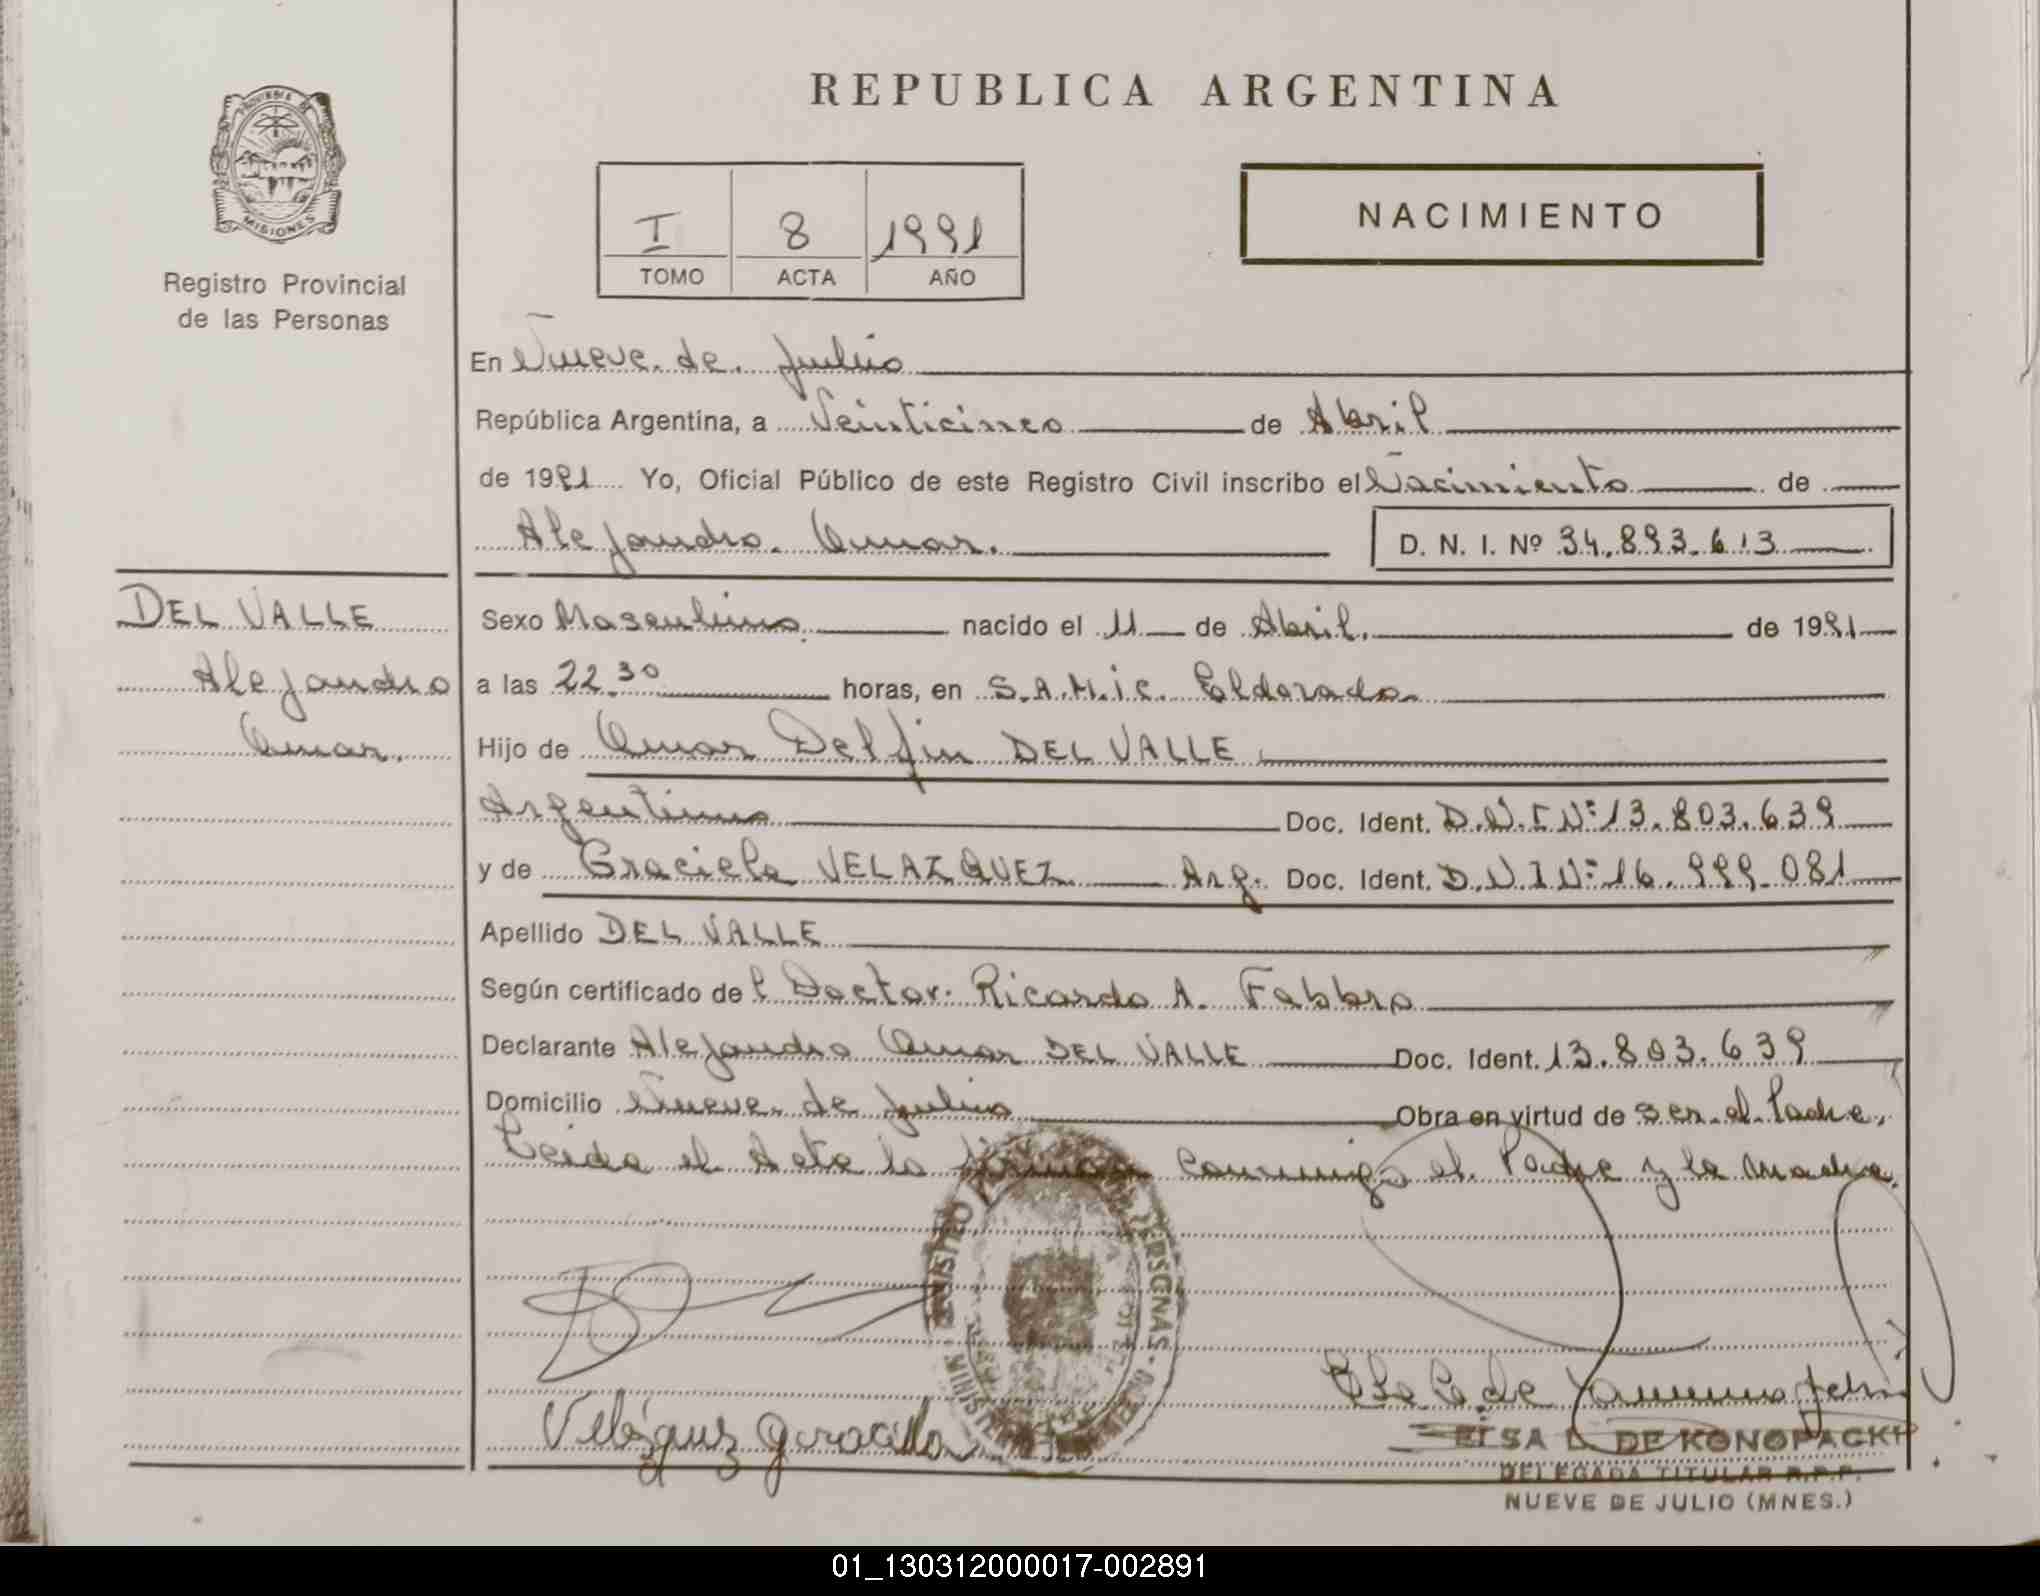 REPUBLICA ARGENTINA
PROVINCIA DE
MISIONES
Registro Provincial
de las Personas
I 8 1991
TOMO ACTA AÑO
NACIMIENTO
En Nueve de Julio
República Argentina, a Veinticinco de Abril
de 1991 Yo, Oficial Público de este Registro Civil inscribo el Nacimiento de
Alejandro Omar. D. N. I. Nº 34.893.613
DEL VALLE
Alejandro
Omar.
Sexo Masculino nacido el 11 de Abril. de 1991
a las 22.30 horas, en S.A.M.i.c. Eldorado.
Hijo de Omar Delfin DEL VALLE
Argentino Doc. Ident. D.N.I Nº 13.803.639
y de Graciela VELAZQUEZ Arg. Doc. Ident. D.N.I Nº 16.999.081
Apellido DEL VALLE
Según certificado del Doctor. Ricardo A. Fabbro
Declarante Alejandro Omar DEL VALLE Doc. Ident. 13.803.639
Domicilio Nueve de Julio Obra en virtud de ser el Padre,
Leida el Acta la firman conmigo el Padre y la madre.
Velázquez Graciela
ELSA L. DE KONOPACKI
DELEGADA TITULAR R.P.P.
NUEVE DE JULIO (MNES.)
01_130312000017-002891